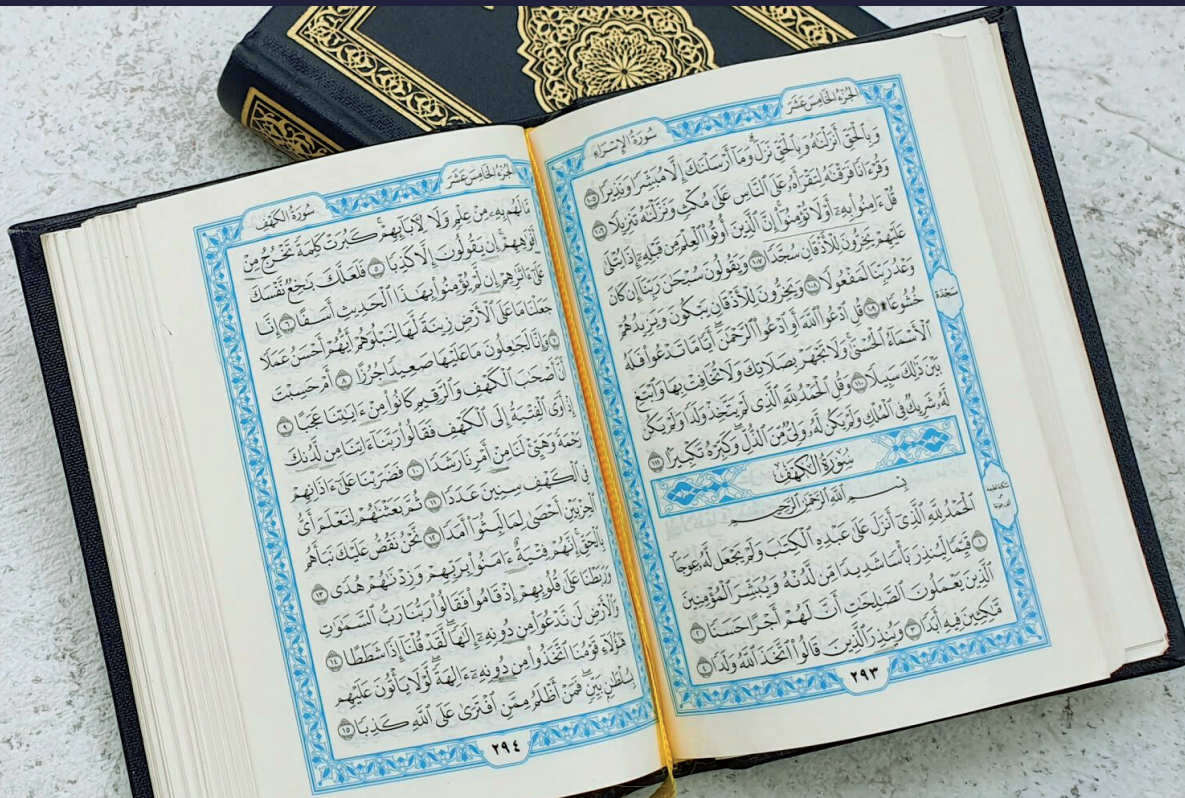 سُورَةُ الإِسْرَاءِ
الجُزْءُ الخَامِسَ عَشَرَ
وَبِٱلْحَقِّ أَنزَلْنَٰهُ وَبِٱلْحَقِّ نَزَلَ وَمَآ أَرْسَلْنَٰكَ إِلَّا مُبَشِّرًا وَنَذِيرًا ١٠٥
وَقُرْءَانًا فَرَقْنَٰهُ لِتَقْرَأَهُۥ عَلَى ٱلنَّاسِ عَلَىٰ مُكْثٍ وَنَزَّلْنَٰهُ تَنزِيلًا ١٠٦
قُلْ ءَامِنُوا۟ بِهِۦٓ أَوْ لَا تُؤْمِنُوٓا۟ إِنَّ ٱلَّذِينَ أُوتُوا۟ ٱلْعِلْمَ مِن قَبْلِهِۦٓ إِذَا يُتْلَىٰ
عَلَيْهِمْ يَخِرُّونَ لِلْأَذْقَانِ سُجَّدًا ١٠٧ وَيَقُولُونَ سُبْحَٰنَ رَبِّنَآ إِن كَانَ
وَعْدُ رَبِّنَا لَمَفْعُولًا ١٠٨ وَيَخِرُّونَ لِلْأَذْقَانِ يَبْكُونَ وَيَزِيدُهُمْ
خُشُوعًا ۩ ١٠٩ قُلِ ٱدْعُوا۟ ٱللَّهَ أَوِ ٱدْعُوا۟ ٱلرَّحْمَٰنَ أَيًّا مَّا تَدْعُوا۟ فَلَهُ
ٱلْأَسْمَآءُ ٱلْحُسْنَىٰ وَلَا تَجْهَرْ بِصَلَاتِكَ وَلَا تُخَافِتْ بِهَا وَٱبْتَغِ
بَيْنَ ذَٰلِكَ سَبِيلًا ١١٠ وَقُلِ ٱلْحَمْدُ لِلَّهِ ٱلَّذِى لَمْ يَتَّخِذْ وَلَدًا وَلَمْ يَكُن
لَّهُۥ شَرِيكٌ فِى ٱلْمُلْكِ وَلَمْ يَكُن لَّهُۥ وَلِىٌّ مِّنَ ٱلذُّلِّ وَكَبِّرْهُ تَكْبِيرًا ١١١
سُورَةُ الكَهْفِ
بِسْمِ ٱللَّهِ ٱلرَّحْمَٰنِ ٱلرَّحِيمِ
ٱلْحَمْدُ لِلَّهِ ٱلَّذِىٓ أَنزَلَ عَلَىٰ عَبْدِهِ ٱلْكِتَٰبَ وَلَمْ يَجْعَل لَّهُۥ عِوَجَا
١ قَيِّمًا لِّيُنذِرَ بَأْسًا شَدِيدًا مِّن لَّدُنْهُ وَيُبَشِّرَ ٱلْمُؤْمِنِينَ
ٱلَّذِينَ يَعْمَلُونَ ٱلصَّٰلِحَٰتِ أَنَّ لَهُمْ أَجْرًا حَسَنًا ٢
مَّٰكِثِينَ فِيهِ أَبَدًا ٣ وَيُنذِرَ ٱلَّذِينَ قَالُوا۟ ٱتَّخَذَ ٱللَّهُ وَلَدًا ٤
سَجْدَة
٢٩٣
سُورَةُ الكَهْفِ
الجُزْءُ الخَامِسَ عَشَرَ
مَّا لَهُم بِهِۦ مِنْ عِلْمٍ وَلَا لِءَابَآئِهِمْ كَبُرَتْ كَلِمَةً تَخْرُجُ مِنْ
أَفْوَٰهِهِمْ إِن يَقُولُونَ إِلَّا كَذِبًا ٥ فَلَعَلَّكَ بَٰخِعٌ نَّفْسَكَ
عَلَىٰٓ ءَاثَٰرِهِمْ إِن لَّمْ يُؤْمِنُوا۟ بِهَٰذَا ٱلْحَدِيثِ أَسَفًا ٦ إِنَّا
جَعَلْنَا مَا عَلَى ٱلْأَرْضِ زِينَةً لَّهَا لِنَبْلُوَهُمْ أَيُّهُمْ أَحْسَنُ عَمَلًا
٧ وَإِنَّا لَجَٰعِلُونَ مَا عَلَيْهَا صَعِيدًا جُرُزًا ٨ أَمْ حَسِبْتَ
أَنَّ أَصْحَٰبَ ٱلْكَهْفِ وَٱلرَّقِيمِ كَانُوا۟ مِنْ ءَايَٰتِنَا عَجَبًا ٩
إِذْ أَوَى ٱلْفِتْيَةُ إِلَى ٱلْكَهْفِ فَقَالُوا۟ رَبَّنَآ ءَاتِنَا مِن لَّدُنكَ
رَحْمَةً وَهَيِّئْ لَنَا مِنْ أَمْرِنَا رَشَدًا ١٠ فَضَرَبْنَا عَلَىٰٓ ءَاذَانِهِمْ
فِى ٱلْكَهْفِ سِنِينَ عَدَدًا ١١ ثُمَّ بَعَثْنَٰهُمْ لِنَعْلَمَ أَىُّ
ٱلْحِزْبَيْنِ أَحْصَىٰ لِمَا لَبِثُوٓا۟ أَمَدًا ١٢ نَّحْنُ نَقُصُّ عَلَيْكَ نَبَأَهُم
بِٱلْحَقِّ إِنَّهُمْ فِتْيَةٌ ءَامَنُوا۟ بِرَبِّهِمْ وَزِدْنَٰهُمْ هُدًى ١٣
وَرَبَطْنَا عَلَىٰ قُلُوبِهِمْ إِذْ قَامُوا۟ فَقَالُوا۟ رَبُّنَا رَبُّ ٱلسَّمَٰوَٰتِ
وَٱلْأَرْضِ لَن نَّدْعُوَا۟ مِن دُونِهِۦٓ إِلَٰهًا لَّقَدْ قُلْنَآ إِذًا شَطَطًا ١٤
هَٰٓؤُلَآءِ قَوْمُنَا ٱتَّخَذُوا۟ مِن دُونِهِۦٓ ءَالِهَةً لَّوْلَا يَأْتُونَ عَلَيْهِم
بِسُلْطَٰنٍۭ بَيِّنٍ فَمَنْ أَظْلَمُ مِمَّنِ ٱفْتَرَىٰ عَلَى ٱللَّهِ كَذِبًا ١٥
٢٩٤